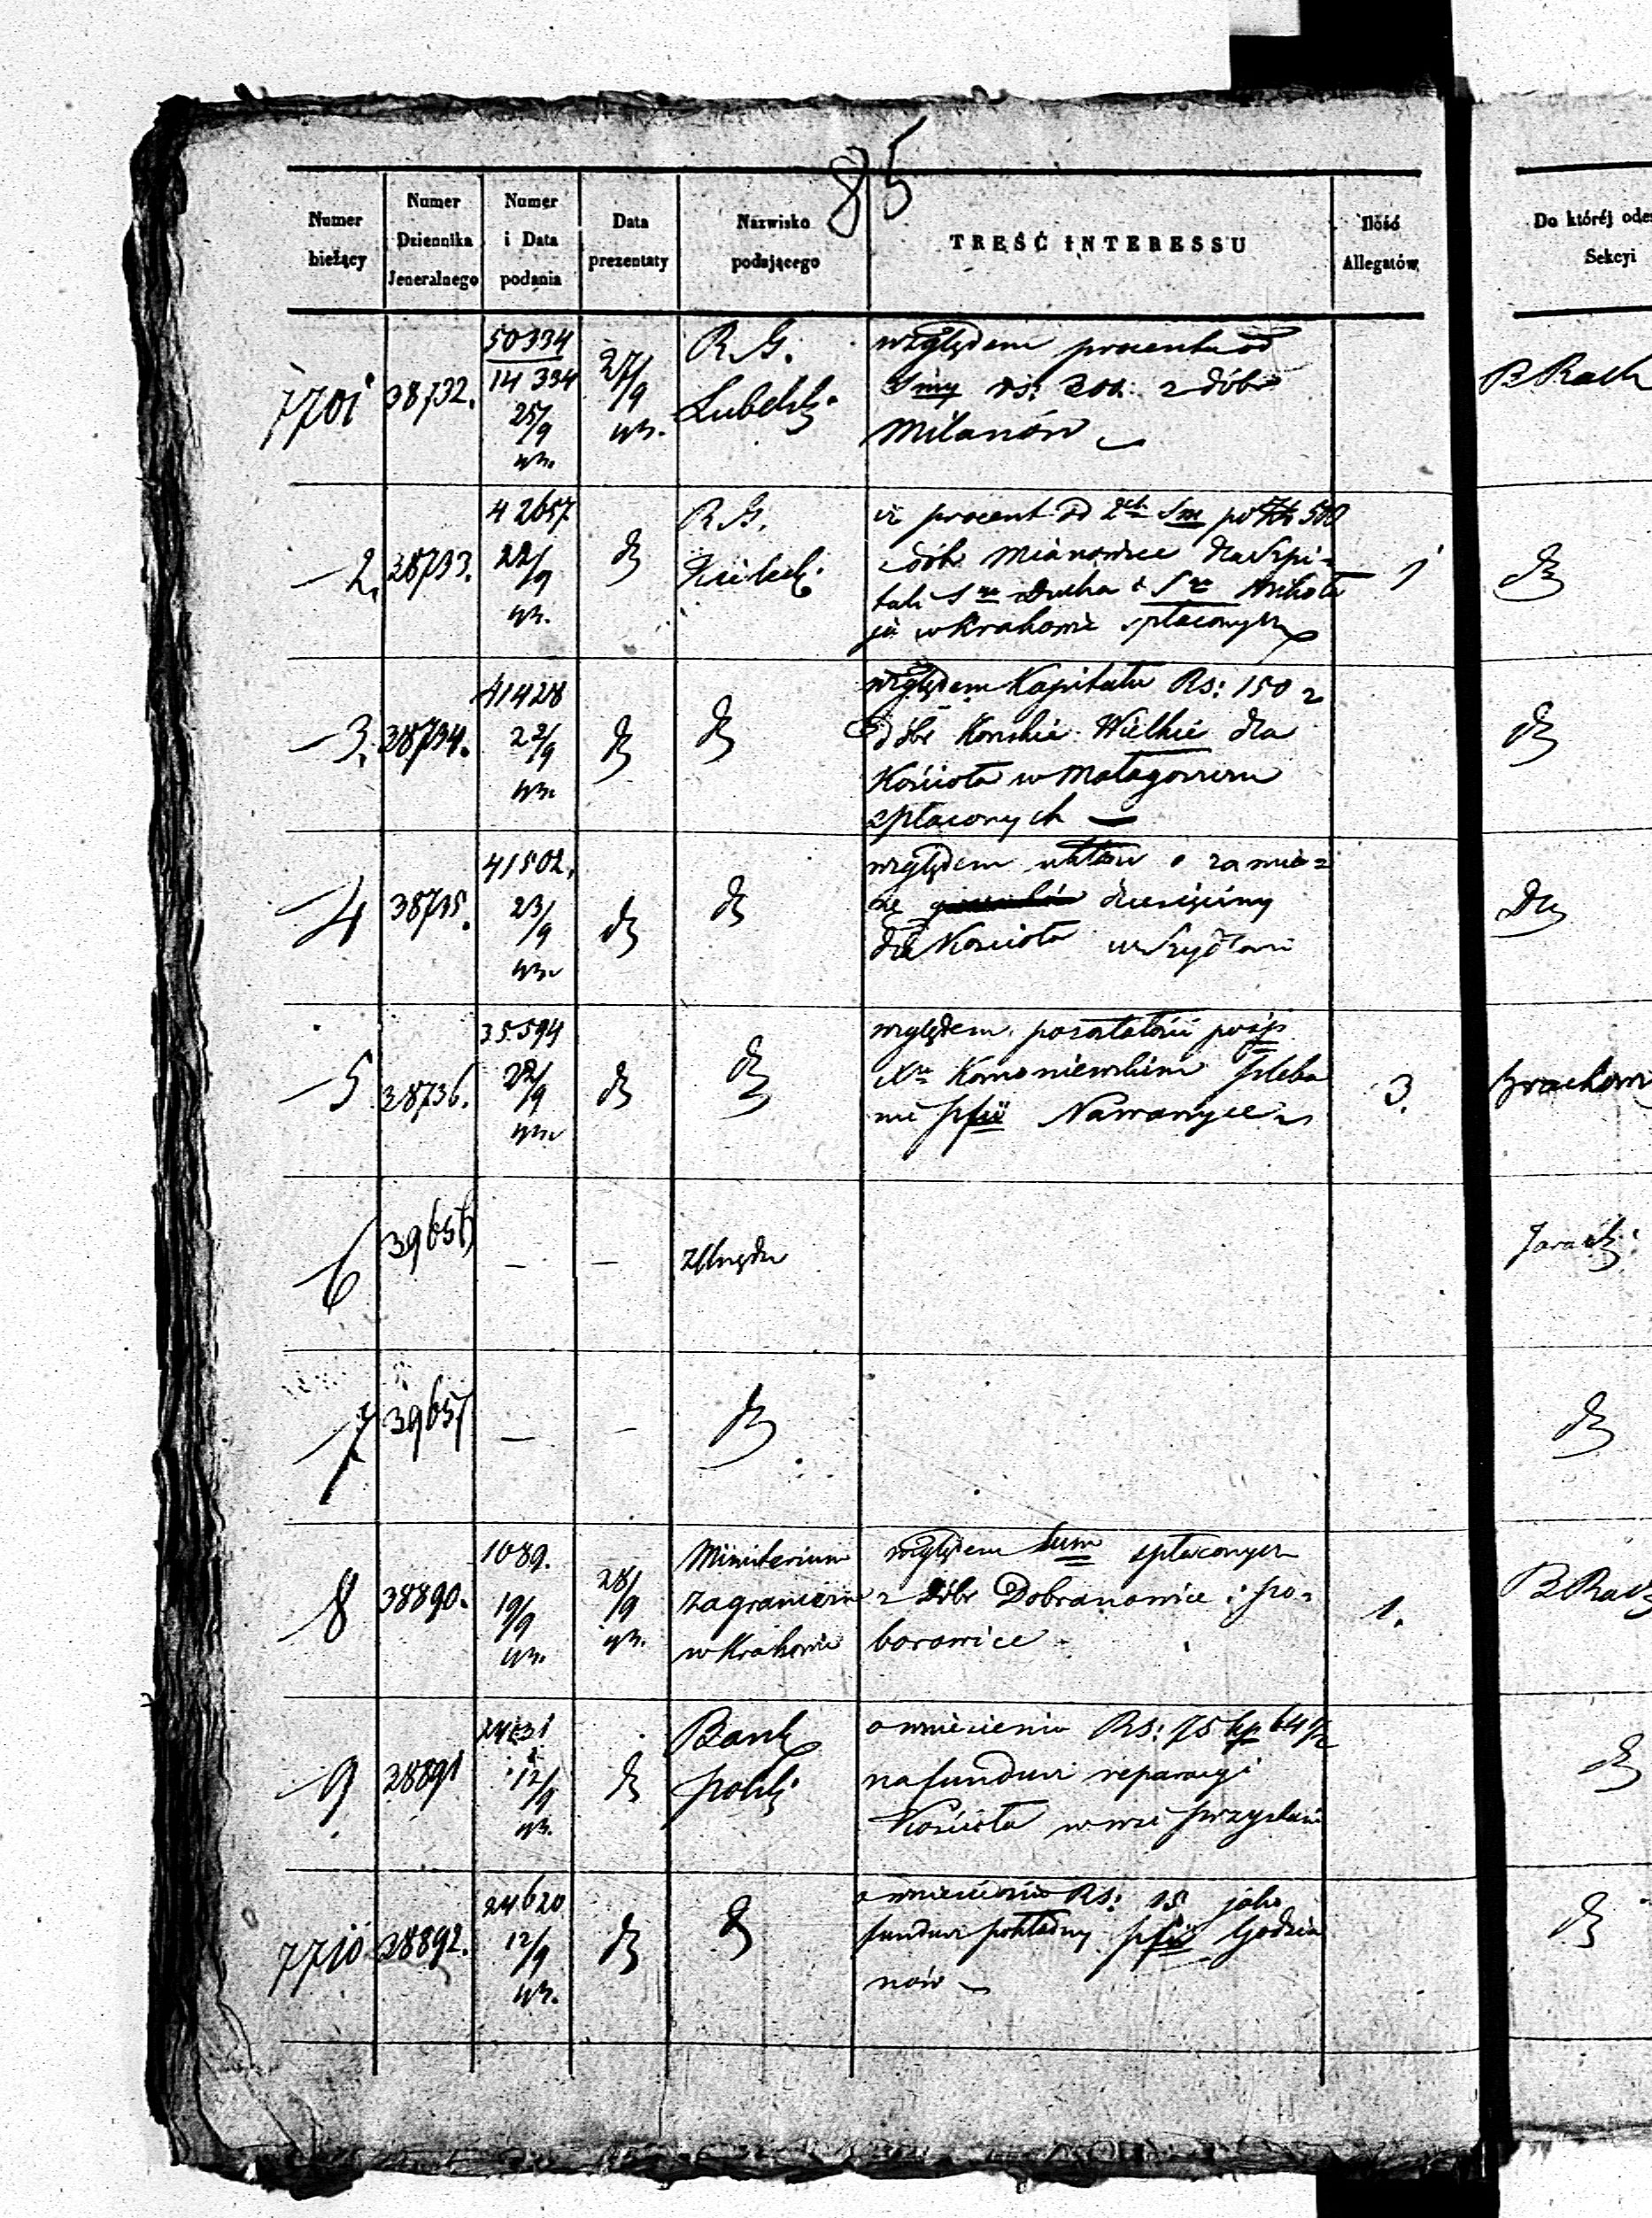 85
Numer bieżący
Numer Dziennika Jeneralnego
Numer i Data podania
Data prezentaty
Nazwisko podającego
TREŚĆ INTERESSU
Ilość Allegatów
Do któréj odes
Sekcyi
7701
38732.
50334
14 334
25/9
27/9
R. G.
Lubelski
względem procentu od
Smy rs: 300. z dóbr
Milanów
B Rach
2.
38733.
42657
22/9
R. G.
Kielecki
iż procent od 2ch Sm po 500
dób. Mianowice dla Szpi=
tali Sgo Ducha i Sgo Mikoła
ja w Krakowie spłaconych
1
3.
38734.
41428
22/9
względem Kapitału Rs: 150 z
dóbr Końskie Wielkie dla
Kościoła w Małagoszczu
spłaconych
4
38735.
41502.
23/9
względem układu o zamia=
nę dziesięciny
dla Kościoła w Szydłowie
5
38736.
35.594
22/9
względem pozostałości po śp.
Komoniewskim Pleba
nie Nawarzyce
3.
6
39656
—
—
z Urzędu
Jaracki
7
39657
—
—
8
38890.
1089.
19/9
28/9
Ministerium
zagraniczne
w Krakowie
względem Sum spłaconych
z dóbr Dobranowice i Po=
borowice
1.
B Rach
9
38891
24631
12/9
Bank
Polski
o wniesieniu Rs: 75 kp 64 1/2
na fundusz reparacyi
Kościoła we wsi
7710
38892.
24620
12/9
o wniesieniu Rs: 15 jako
fundusz pokładny Godzia
nów